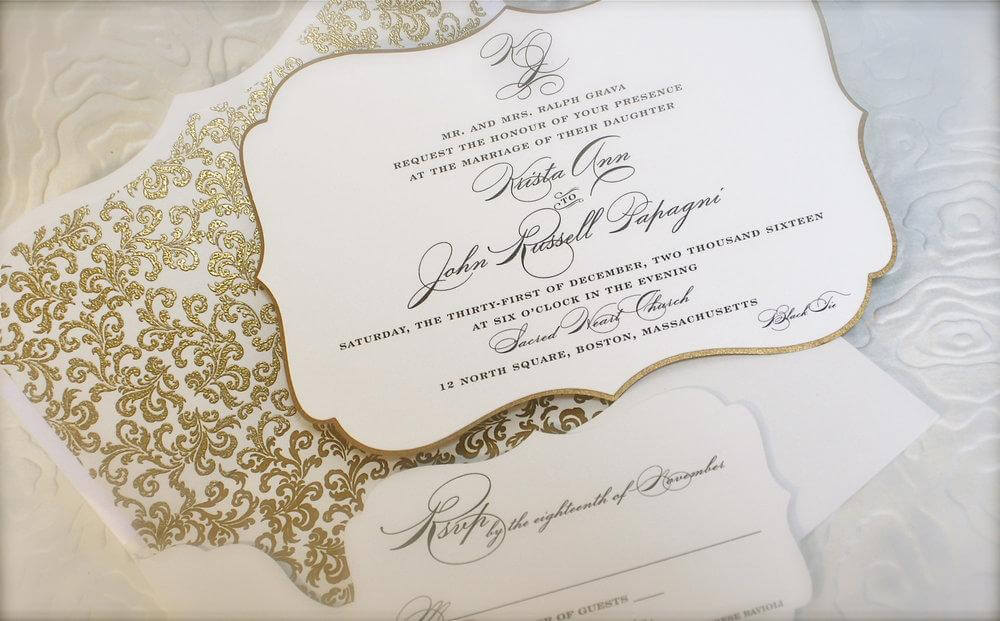 KJ
MR. AND MRS. RALPH GRAVA
REQUEST THE HONOUR OF YOUR PRESENCE
AT THE MARRIAGE OF THEIR DAUGHTER
Krista Ann
TO
John Russell Papagni
SATURDAY, THE THIRTY-FIRST OF DECEMBER, TWO THOUSAND SIXTEEN
AT SIX O'CLOCK IN THE EVENING
Sacred Heart Church
12 NORTH SQUARE, BOSTON, MASSACHUSETTS
Black Tie
Rsvp by the eighteenth of November
M
OF GUESTS
RAVIOLI